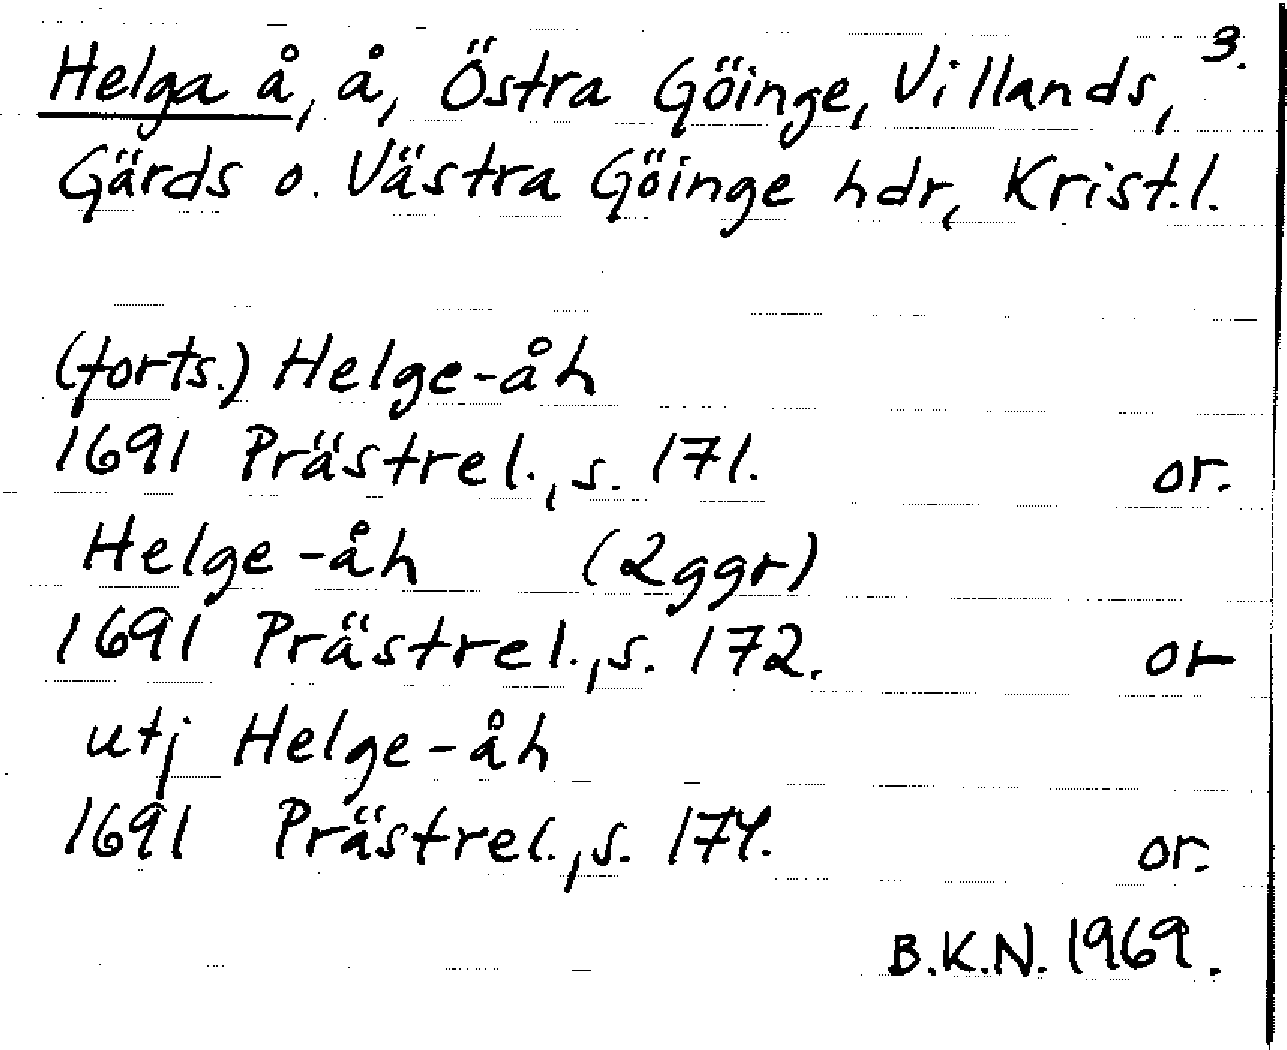 3.
Helga å, å, Östra Göinge, Villands,
Gärds o. Västra Göinge hdr, Krist.l.
(forts.) Helge-åh
1691 Prästrel., s. 171. or.
Helge-åh (2ggr)
1691 Prästrel., s. 172. or
utj Helge-åh
1691 Prästrel., s. 174. or.
B.K.N. 1969.